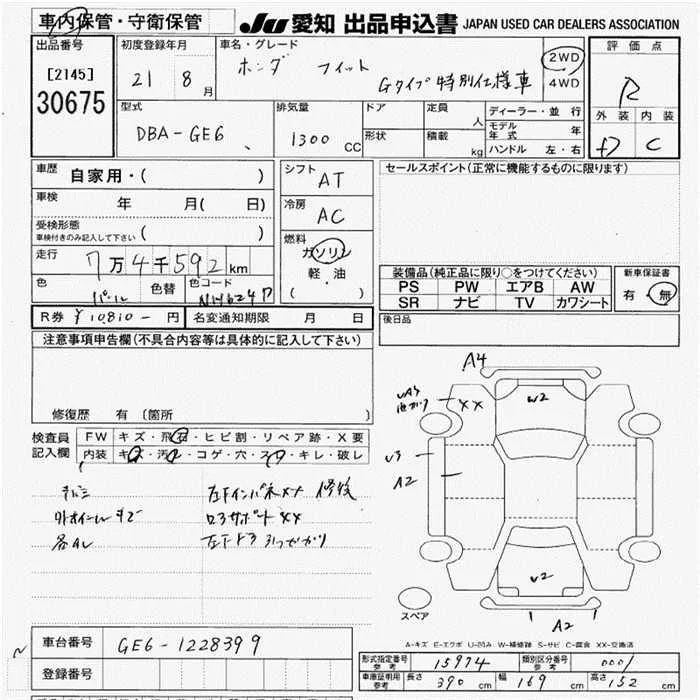 車内保管・守衛保管
JU 愛知 出品申込書 JAPAN USED CAR DEALERS ASSOCIATION
出品番号 初度登録年月 車名・グレード 評価点
[2145] 21 8月 ホンダ フィット 2WD R
30675 Gタイプ特別仕様車 4WD
型式 排気量 ドア 定員 人 ディーラー・並行 外装 内装
DBA-GE6 1300 CC 形状 積載 kg モデル年式 年 C
ハンドル 左・右
車歴 自家用・( ) シフト AT セールスポイント(正常に機能するものに限ります)
車検 年 月( 日) 冷房 AC
受検形態
車検付きのみ記入して下さい ( ) 燃料 ガソリン
走行 7万4千592km 軽・油
( )
装備品(純正品に限り○をつけてください) 新車保証書
色 パール 色替 色コード NH624P PS PW エアB AW 有・無
SR ナビ TV カワシート
R券 ¥10,810- 円 名変通知期限 月 日 後日品
注意事項申告欄(不具合内容等は具体的に記入して下さい)
修復歴 有 〔箇所 〕
検査員 FW キズ・飛石・ヒビ割・リペア跡・X要
記入欄 内装 キズ・汚れ・コゲ・穴・スレ・キレ・破レ
左FインパネXX 修復
外ホイールキズ ロアサポートXX
各AL 左Fドア引っかかり
A4
W2
XX
U3
A2
U2
A2
スペア
A-キズ E-エクボ U-凹み W-補修跡 S-サビ C-腐食 XX-交換済
車台番号 GE6-1228399
登録番号
形式指定番号 参考 15974 類別区分番号 参考 0001
車庫証明用 参考 長さ 390 cm 幅 169 cm 高さ 152 cm